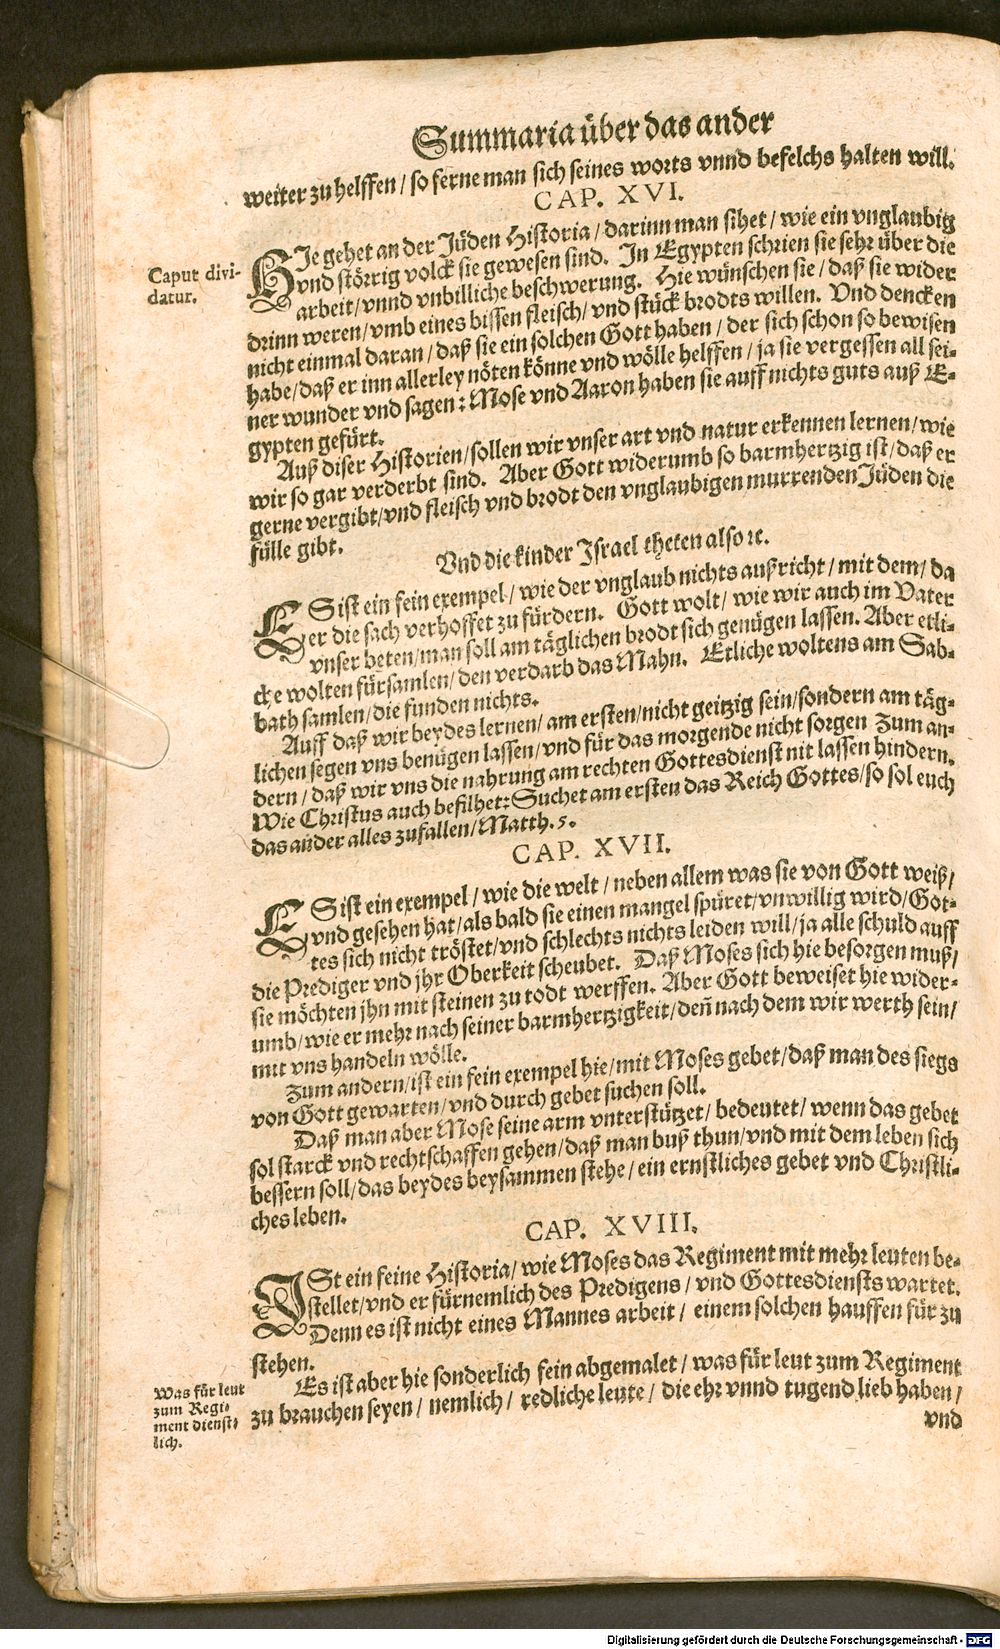 Summaria über das ander
weiter zu helffen / so ferne man sich seines worts vnnd befelchs halten will.
CAP. XVI.
Caput divi-
datur.
HIe gehet an der Jüden Historia / darinn man sihet / wie ein vnglaubig
vnd störrig volck sie gewesen sind. In Egypten schrien sie sehr über die
arbeit / vnnd vnbilliche beschwerung. Hie wünschen sie / daß sie wider
drinn weren / vmb eines bissen fleisch / vnd stück brodts willen. Vnd dencken
nicht einmal daran / daß sie ein solchen Gott haben / der sich schon so bewisen
habe / daß er inn allerley nöten könne vnd wölle helffen / ja sie vergessen all sei-
ner wunder vnd sagen: Mose vnd Aaron haben sie auff nichts guts auß E-
gypten gefürt.
Auß diser Historien / sollen wir vnser art vnd natur erkennen lernen / wie
wir so gar verderbt sind. Aber Gott widerumb so barmhertzig ist / daß er
gerne vergibt / vnd fleisch vnd brodt den vnglaubigen murrenden Jüden die
fülle gibt.
Vnd die kinder Israel theten also ꝛc.
ES ist ein fein exempel / wie der vnglaub nichts außricht / mit dem / da
er die sach verhoffet zu fürdern. Gott wolt / wie wir auch im Vater
vnser beten / man soll am täglichen brodt sich genügen lassen. Aber etli-
che wolten fürsamlen / den verdarb das Mahn. Etliche woltens am Sab-
bath samlen / die funden nichts.
Auff daß wir beydes lernen / am ersten / nicht geitzig sein / sondern am täg-
lichen segen vns benügen lassen / vnd für das morgende nicht sorgen Zum an-
dern / daß wir vns die nahrung am rechten Gottesdienst nit lassen hindern.
Wie Christus auch befilhet: Suchet am ersten das Reich Gottes / so sol euch
das ander alles zufallen / Matth. 5.
CAP. XVII.
ES ist ein exempel / wie die welt / neben allem was sie von Gott weiß /
vnd gesehen hat / als bald sie einen mangel spüret / vnwillig wird / Got-
tes sich nicht tröstet / vnd schlechts nichts leiden will / ja alle schuld auff
die Prediger vnd jhr Oberkeit scheubet. Daß Moses sich hie besorgen muß /
sie möchten jhn mit steinen zu todt werffen. Aber Gott beweiset hie wider-
umb / wie er mehr nach seiner barmhertzigkeit / deñ nach dem wir werth sein /
mit vns handeln wölle.
Zum andern / ist ein fein exempel hie / mit Moses gebet / daß man des siegs
von Gott gewarten / vnd durch gebet suchen soll.
Daß man aber Mose seine arm vnterstützet / bedeutet / wenn das gebet
sol starck vnd rechtschaffen gehen / daß man buß thun / vnd mit dem leben sich
bessern soll / das beydes beysammen stehe / ein ernstliches gebet vnd Christli-
ches leben.
CAP. XVIII.
ISt ein feine Historia / wie Moses das Regiment mit mehr leuten be-
stellet / vnd er fürnemlich des Predigens / vnd Gottesdiensts wartet.
Denn es ist nicht eines Mannes arbeit / einem solchen hauffen für zu
stehen.
Was für leut
zum Regi-
ment dienst-
lich.
Es ist aber hie sonderlich fein abgemalet / was für leut zum Regiment
zu brauchen seyen / nemlich / redliche leute / die ehr vnnd tugend lieb haben /
vnd
Digitalisierung gefördert durch die Deutsche Forschungsgemeinschaft - DFG